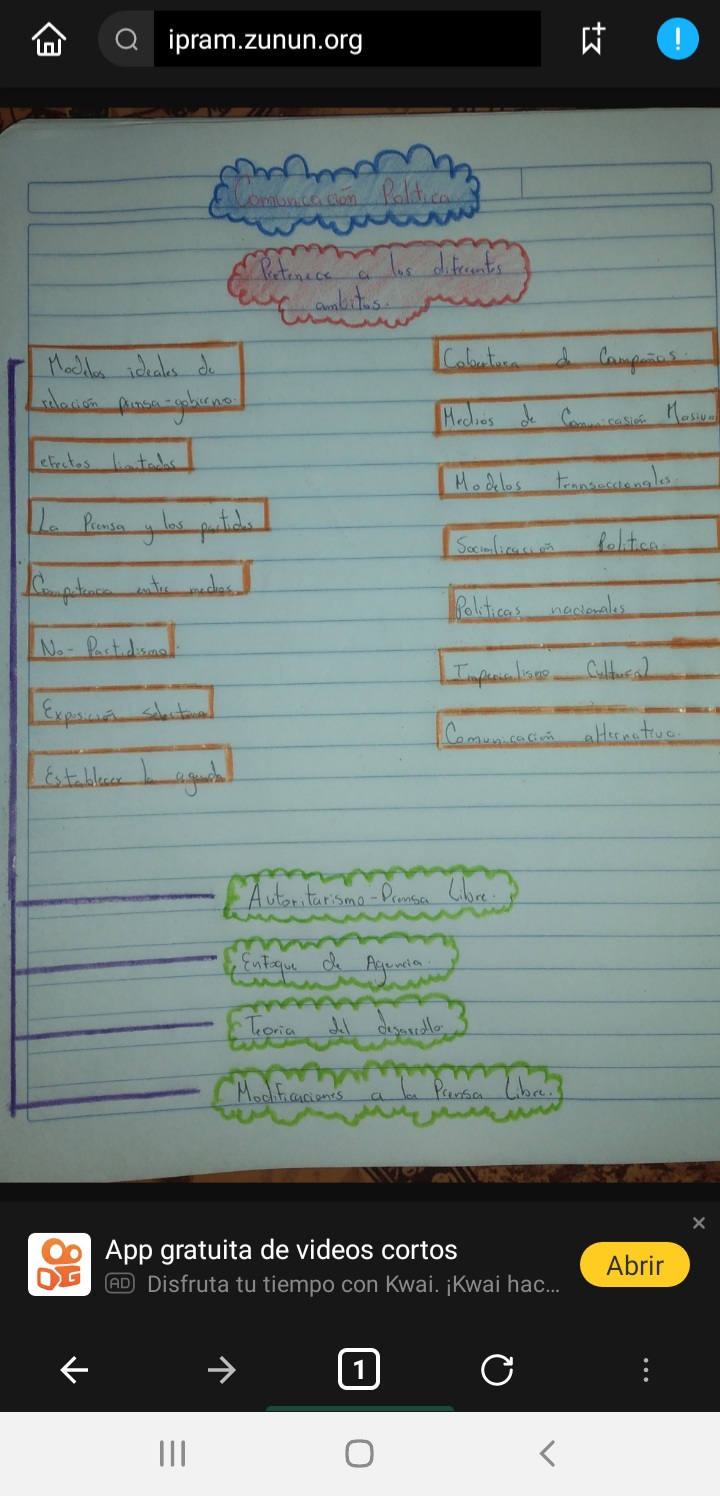 ipram.zunun.org
Comunicación Política
Pertenece a los diferentes
ambitos.
Modelos ideales de
relación prensa-gobierno.
efectos limitados
La Prensa y los partidos
Competencia entre medios
No-Partidismo.
Exposición selectiva
Establecer la agenda
Cobertura de Campañas.
Medios de Comunicasión Masiva
Modelos transaccionales.
Socialicación Política.
Políticas nacionales
Imperialismo Cultural
Comunicación alternativa.
Autoritarismo-Prensa Libre.
Enfoque de Agencia.
Teoria del desarrollo.
Modificaciones a la Prensa Libre.
App gratuita de videos cortos
AD Disfruta tu tiempo con Kwai. ¡Kwai hac...
Abrir
1